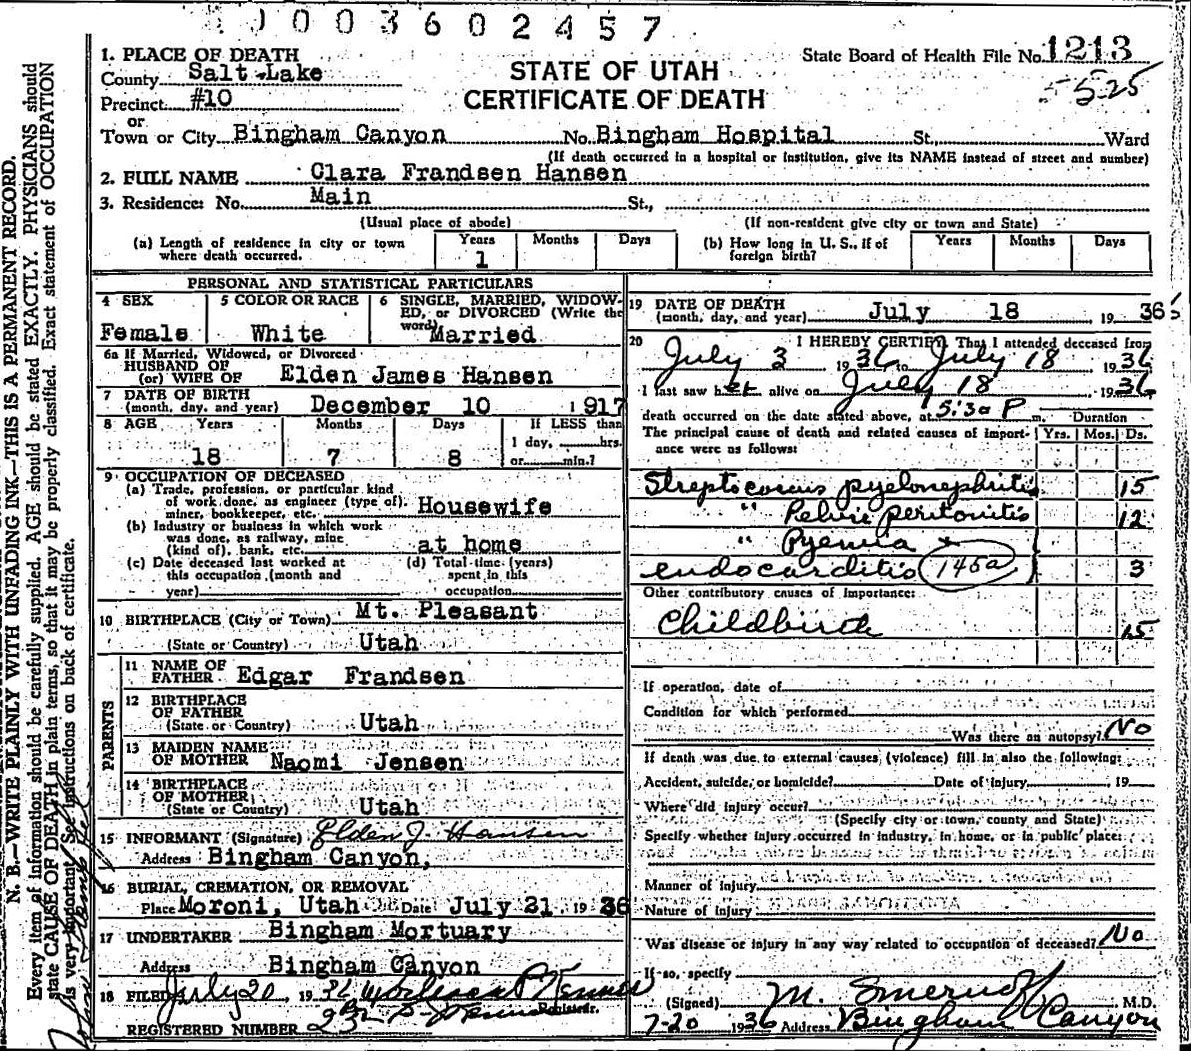 1 0 0 3 6 0 2 4 5 7
1. PLACE OF DEATH
State Board of Health File No. 1213
County Salt Lake
STATE OF UTAH
5525
Precinct #10
CERTIFICATE OF DEATH
or
Town or City Bingham Canyon No. Bingham Hospital St., Ward
(If death occurred in a hospital or institution, give its NAME instead of street and number)
2. FULL NAME Clara Frandsen Hansen
3. Residence: No. Main St.,
(Usual place of abode) (If non-resident give city or town and State)
(a) Length of residence in city or town where death occurred. Years 1 Months Days
(b) How long in U. S., if of foreign birth? Years Months Days
PERSONAL AND STATISTICAL PARTICULARS
4 SEX Female
5 COLOR OR RACE White
6 SINGLE, MARRIED, WIDOWED, or DIVORCED (Write the word) Married
6a If Married, Widowed, or Divorced
HUSBAND OF
(or) WIFE OF Elden James Hansen
7 DATE OF BIRTH
(month, day, and year) December 10 1917
8 AGE Years 18 Months 7 Days 8 If LESS than
1 day, hrs.
or min.?
9 OCCUPATION OF DECEASED
(a) Trade, profession, or particular kind
of work done, as engineer (type of),
miner, bookkeeper, etc. Housewife
(b) Industry or business in which work
was done, as railway, mine
(kind of), bank, etc. at home
(c) Date deceased last worked at
this occupation (month and
year)
(d) Total time (years)
spent in this
occupation
10 BIRTHPLACE (City or Town) Mt. Pleasant
(State or Country) Utah
PARENTS
11 NAME OF
FATHER Edgar Frandsen
12 BIRTHPLACE
OF FATHER
(State or Country) Utah
13 MAIDEN NAME
OF MOTHER Naomi Jensen
14 BIRTHPLACE
OF MOTHER
(State or Country) Utah
15 INFORMANT (Signature) Elden J. Hansen
Address Bingham Canyon,
16 BURIAL, CREMATION, OR REMOVAL
Place Moroni, Utah Date July 21 1936
17 UNDERTAKER Bingham Mortuary
Address Bingham Canyon
18 FILED July 20, 1936
Registrar.
REGISTERED NUMBER
19 DATE OF DEATH
(month, day, and year) July 18 1936
20 I HEREBY CERTIFY, That I attended deceased from
July 3 1936 to July 18 1936
I last saw her alive on July 18 1936
death occurred on the date stated above, at 5:30 P m. Duration
The principal cause of death and related causes of importance were as follows: Yrs. Mos. Ds.
Streptococcus pyelonephritis 15
" Pelvic peritonitis 12
" Pyemia +
endocarditis 145a 3
Other contributory causes of importance:
Childbirth 15
If operation, date of
Condition for which performed
Was there an autopsy? No
If death was due to external causes (violence) fill in also the following:
Accident, suicide, or homicide? Date of injury, 19
Where did injury occur?
(Specify city or town, county and State)
Specify whether injury occurred in industry, in home, or in public place:
Manner of injury
Nature of injury
Was disease or injury in any way related to occupation of deceased? No
If so, specify
(Signed) M. M.D.
7-20 1936 Address Bingham Canyon
N. B.—WRITE PLAINLY WITH UNFADING INK—THIS IS A PERMANENT RECORD.
Every item of information should be carefully supplied. AGE should be stated EXACTLY. PHYSICIANS should
state CAUSE OF DEATH in plain terms, so that it may be properly classified. Exact statement of OCCUPATION
is very important. See instructions on back of certificate.